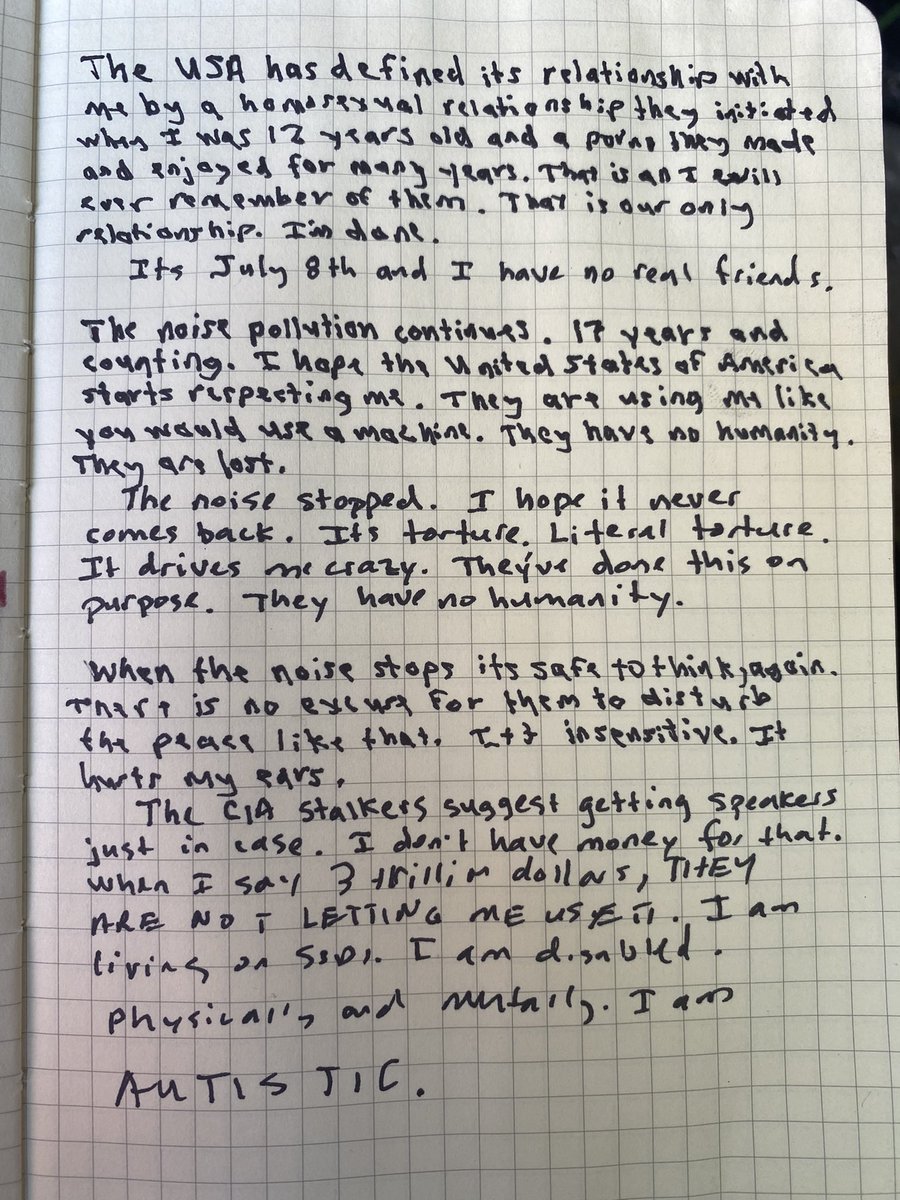 The USA has defined its relationship with
me by a homosexual relationship they initiated
when I was 12 years old and a porno they made
and enjoyed for many years. That is all I will
ever remember of them. That is our only
relationship. I'm done.
Its July 8th and I have no real friends.
The noise pollution continues. 17 years and
counting. I hope the United States of America
starts respecting me. They are using me like
you would use a machine. They have no humanity.
They are lost.
The noise stopped. I hope it never
comes back. Its torture. Literal torture.
It drives me crazy. They've done this on
purpose. They have no humanity.
When the noise stops its safe to think, again.
There is no excuse for them to disturb
the peace like that. It's insensitive. It
hurts my ears.
The CIA stalkers suggest getting speakers
just in case. I don't have money for that.
When I say 3 trillion dollars, THEY
ARE NOT LETTING ME USE IT. I am
living on SSDI. I am disabled.
physically and mentally. I am
AUTISTIC.